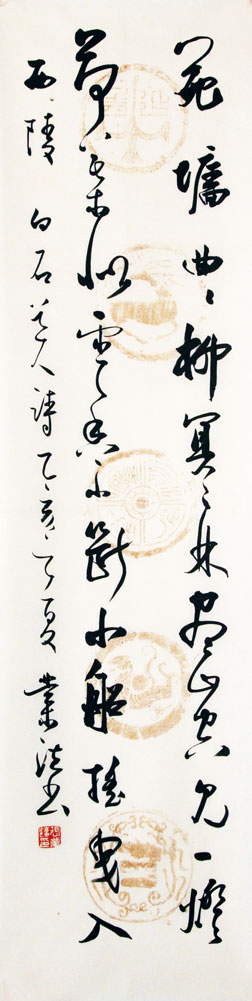 苑墙曲〻柳冥〻山空見一燈
荷葉似雲香不斷小船摇曳入
西陵 白石道人詩乙亥之夏業书